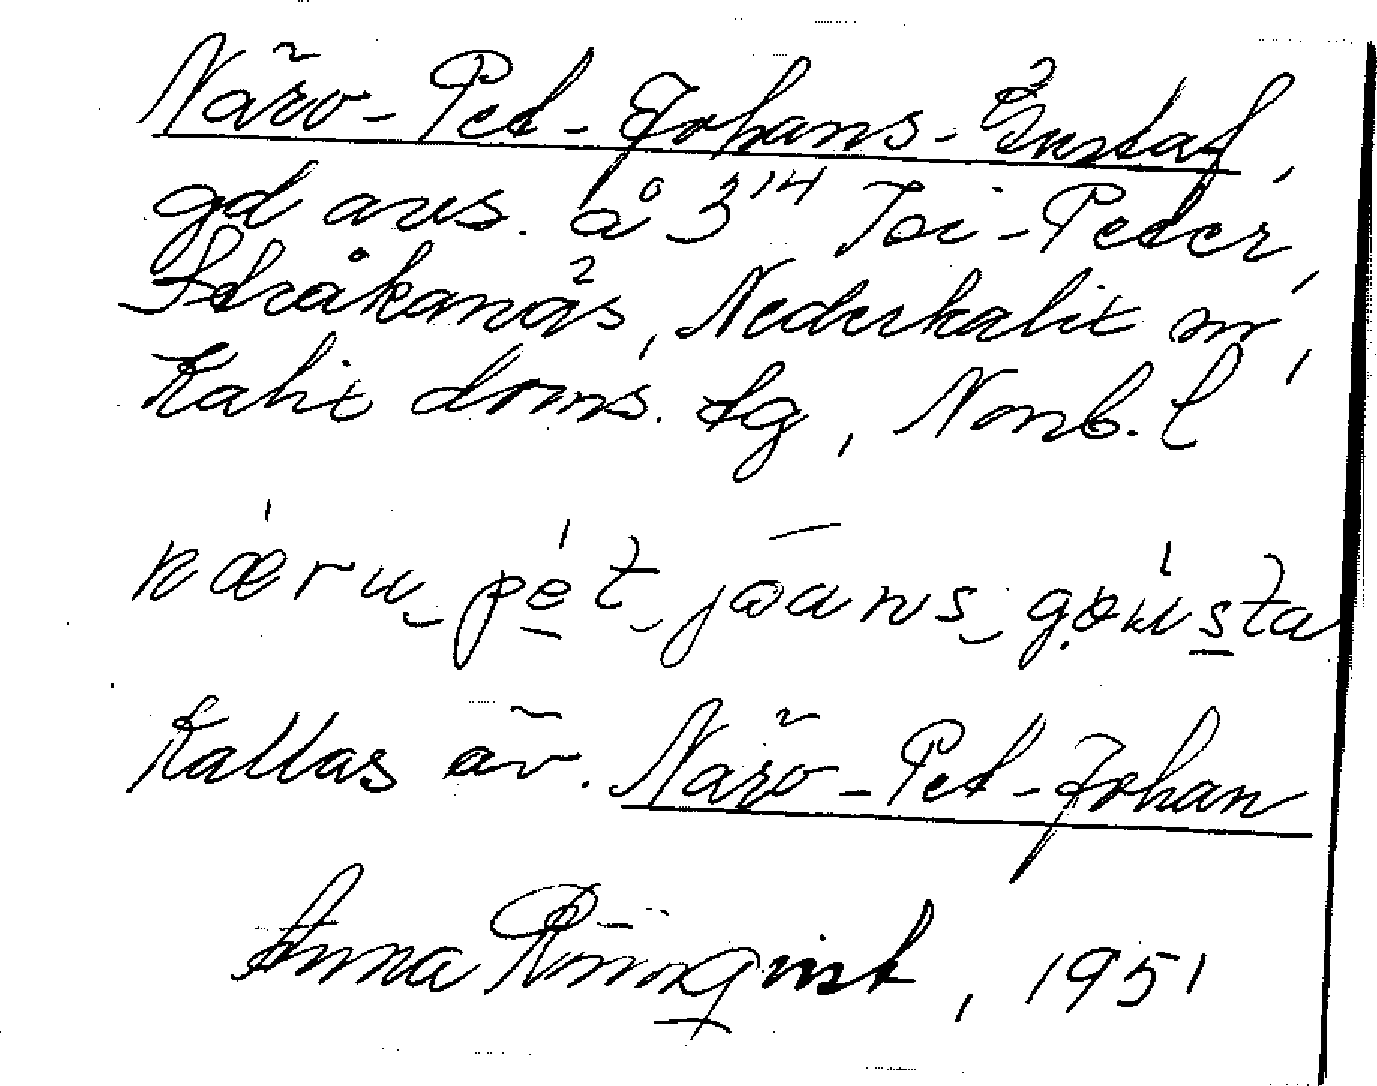 Näro-Pet-Johans-Gustaf,
gd avs. å 3¹⁴ Toi-Peter,
Stråkanäs, Nederkalix sn,
Kalix doms. tg, Norrb. l
næru pet jøans gøusta
Kallas äv. Näro-Pet-Johan
Anna Rönnqvist, 1951